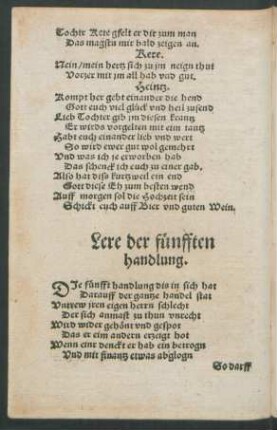 Tochter Kete gfelt er dir zum man
Das magstu mir bald zeigen an.
Kete.
Nein/mein hertz sich zu jm neign thut
Vorzer mit jm all hab vnd gut.
Heintz.
Kompt her gebt einander die hend
Gott euch viel glück vnd heil zusend
Lieb Tochter gib jm diesen krantz
Er wirds vorgelten mit eim tantz
Habt euch einander lieb vnd wert
So wird ewer gut wol gemehrt
Vnd was ich je erworben hab
Das schenck ich euch zu einer gab.
Also hat diss kurtzweil ein end
Gott diese Eh zum besten wend
Auff morgen sol die Hochzeit sein
Schickt euch auff Bier vnd guten Wein.
Lere der fünfften
handlung.
DJe fünfft handlung dis in sich hat
Darauff der gantze handel stat
Vntrew jren eigen herrn schlecht
Der sich anmast zu thun vnrecht
Wird wider gehönt vnd gespot
Das er eim andern erzeigt hot
Wenn einr denckt er hab ein betrogn
Vnd mit finantz etwas abglogn
So darff